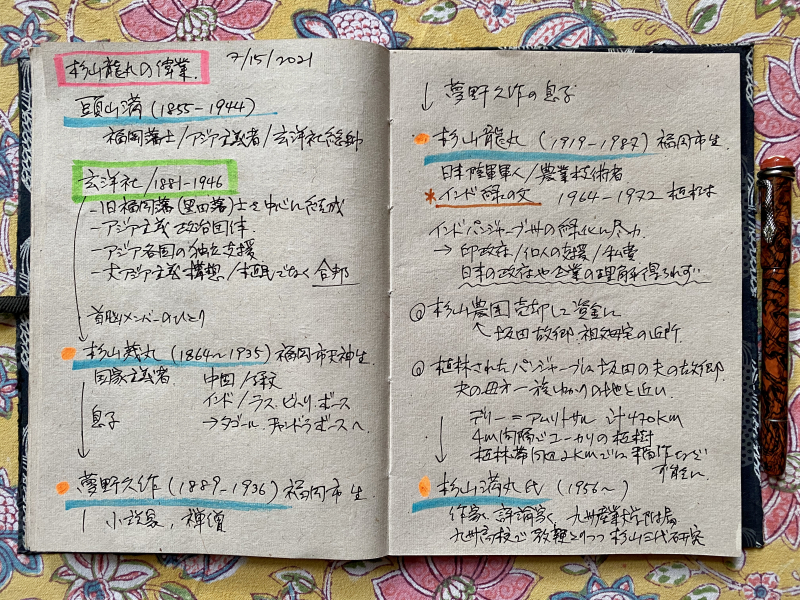 杉山龍丸の偉業 7/15/2021
頭山満(1855-1944)
福岡藩士/アジア主義者/玄洋社総助
玄洋社/1881-1946
-旧福岡藩(黒田藩)士を中心に結成
-アジア主義 政治団体
-アジア各国の独立支援
-大アジア主義構想/植民でなく合邦
首脳メンバーのひとり
杉山茂丸(1864~1935)福岡市天神生
国家主義者 中国/孫文
インド/ラス.ビハリ.ボース
息子 →タゴール.チャンドラボースへ
夢野久作(1889-1936)福岡市生
小説家, 禅僧
↓ 夢野久作の息子
杉山龍丸(1919-1987)福岡市生
日本陸軍軍人/農業技術者
*インド緑の父 1964-1972 植林
インドパンジャーブ州の緑化に尽力
→ 印政府/個人の支援/私費
日本の政府や企業の理解得られず
杉山農園売却して資金に
↖坂田故郷.祖父母宅の近所
植林されたパンジャーブは坂田の夫の故郷
夫の母方一族ゆかりの地と近い
デリー=アムリトサル 計470km
4m間隔でユーカリの植樹
植林帯周辺2kmでは 稲作など可能に
杉山満丸氏(1956~)
作家 評論家、九州産業大学付属
九州高校で教鞭とりつつ杉山三代研究